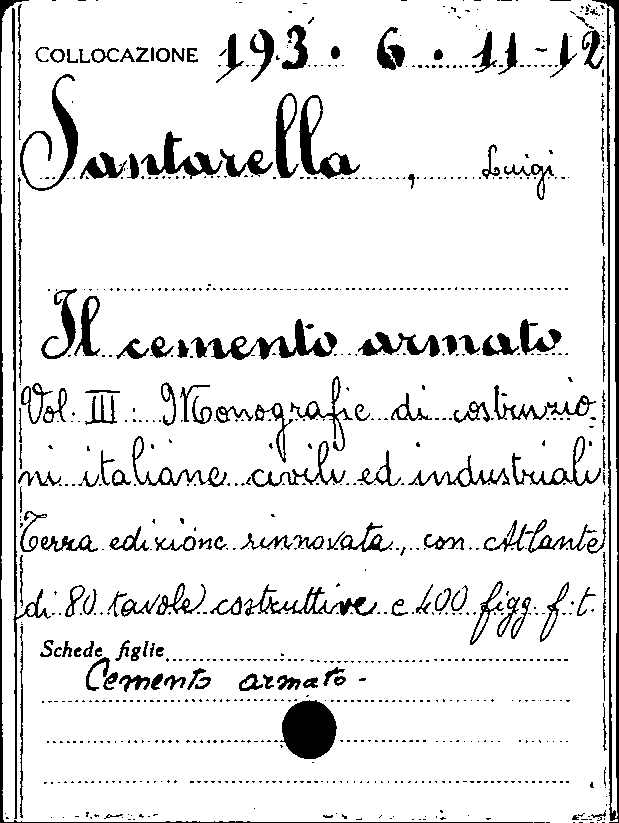 COLLOCAZIONE 193 · 6 · 11-12
Santarella, Luigi
Il cemento armato
Vol. III: Monografie di costruzio-
ni italiane civili ed industriali
Terza edizione rinnovata, con Atlante
di 80 tavole costruttive e 400 figg. f.t.
Schede figlie
Cemento armato -